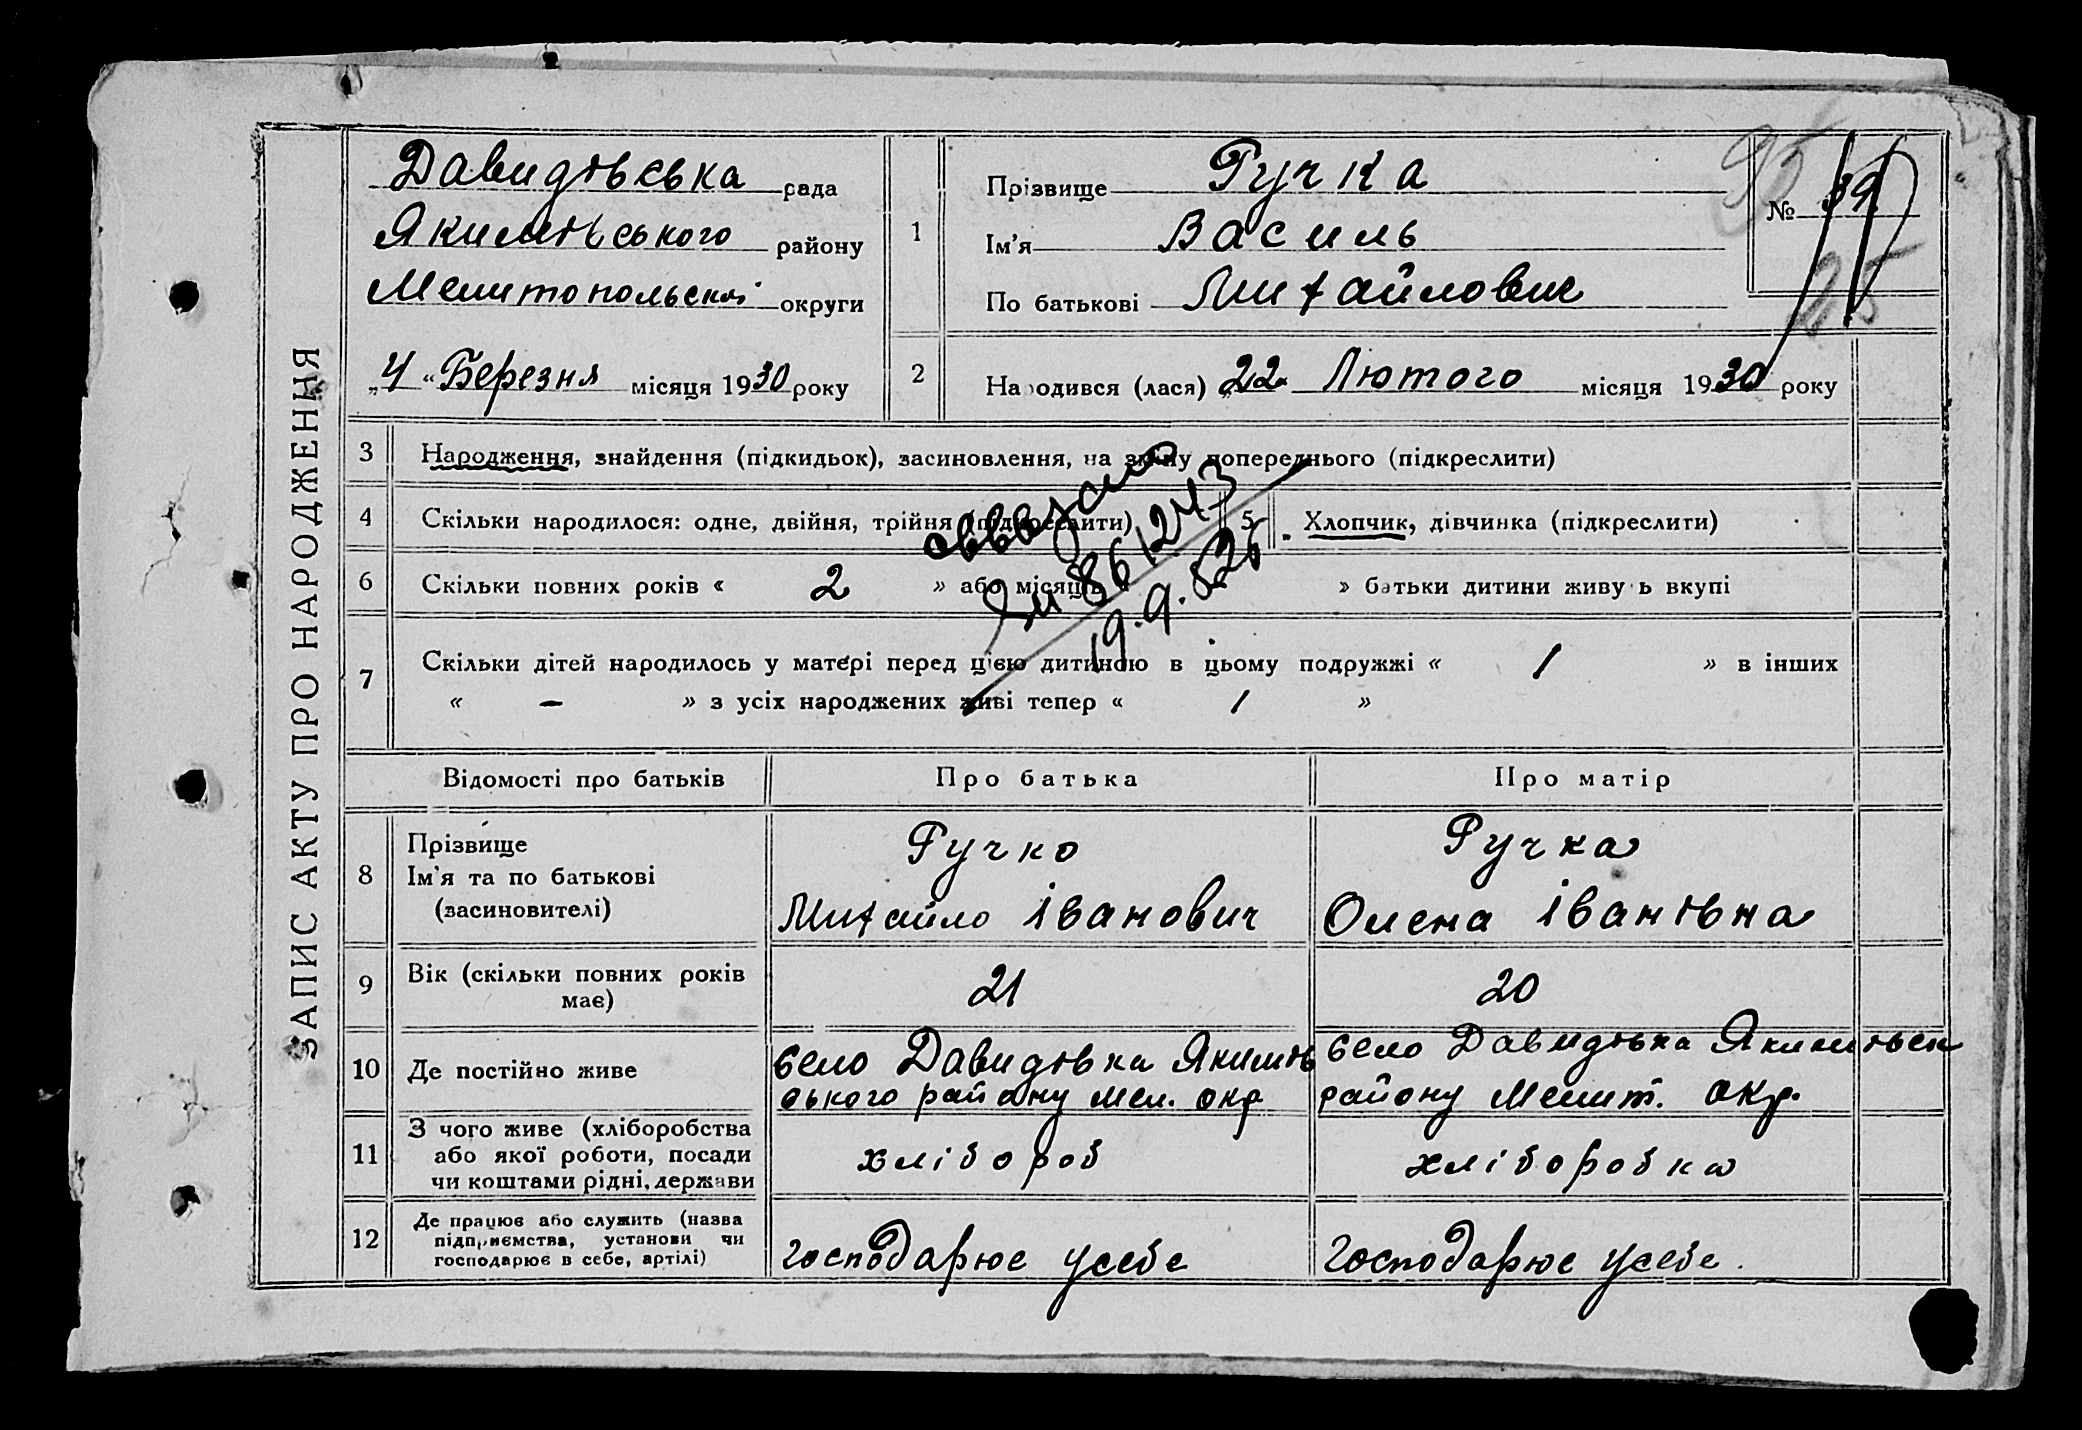 ЗАПИС АКТУ ПРО НАРОДЖЕННЯ
Давидівська рада
Якимівського району
Мелитопольської округи
„4“ Березня місяця 1930 року
1
Прізвище Ручка
Ім’я Василь
По батькові Михайлович
№ 39
95
25
2
Народився (лася) „22 Лютого місяця 1930 року
3 Народження, знайдення (підкидьок), засиновлення, на зміну попереднього (підкреслити)
4 Скільки народилося: одне, двійня, трійня (підкреслити)
5 Хлопчик, дівчинка (підкреслити)
6 Скільки повних років « 2 » або місяців « » батьки дитини живуть вкупі
86124
19.9.
7 Скільки дітей народилось у матері перед цією дитиною в цьому подружжі « 1 » в інших
« – » з усіх народжених живі тепер « 1 »
Відомості про батьків
Про батька
Про матір
8 Прізвище
Ім’я та по батькові
(засиновителі)
Ручко
Михайло Іванович
Ручка
Олена Іванівна
9 Вік (скільки повних років
має)
21
20
10 Де постійно живе
село Давидівка Якимів
ського району Мел. окр
село Давидівка Якимівськ
району Мелит. окр.
11 З чого живе (хліборобства
або якої роботи, посади
чи коштами рідні, держави
хлібороб
хліборобка
12 Де працює або служить (назва
підприємства, установи чи
господарює в себе, артілі)
господарює усебе
господарює усебе.